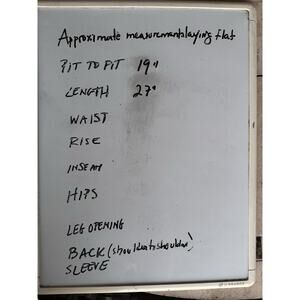 Approximate measurement laying flat
PIT TO PIT 19"
LENGTH 27"
WAIST
RISE
INSEAM
HIPS
LEG OPENING
BACK (shoulder to shoulder)
SLEEVE